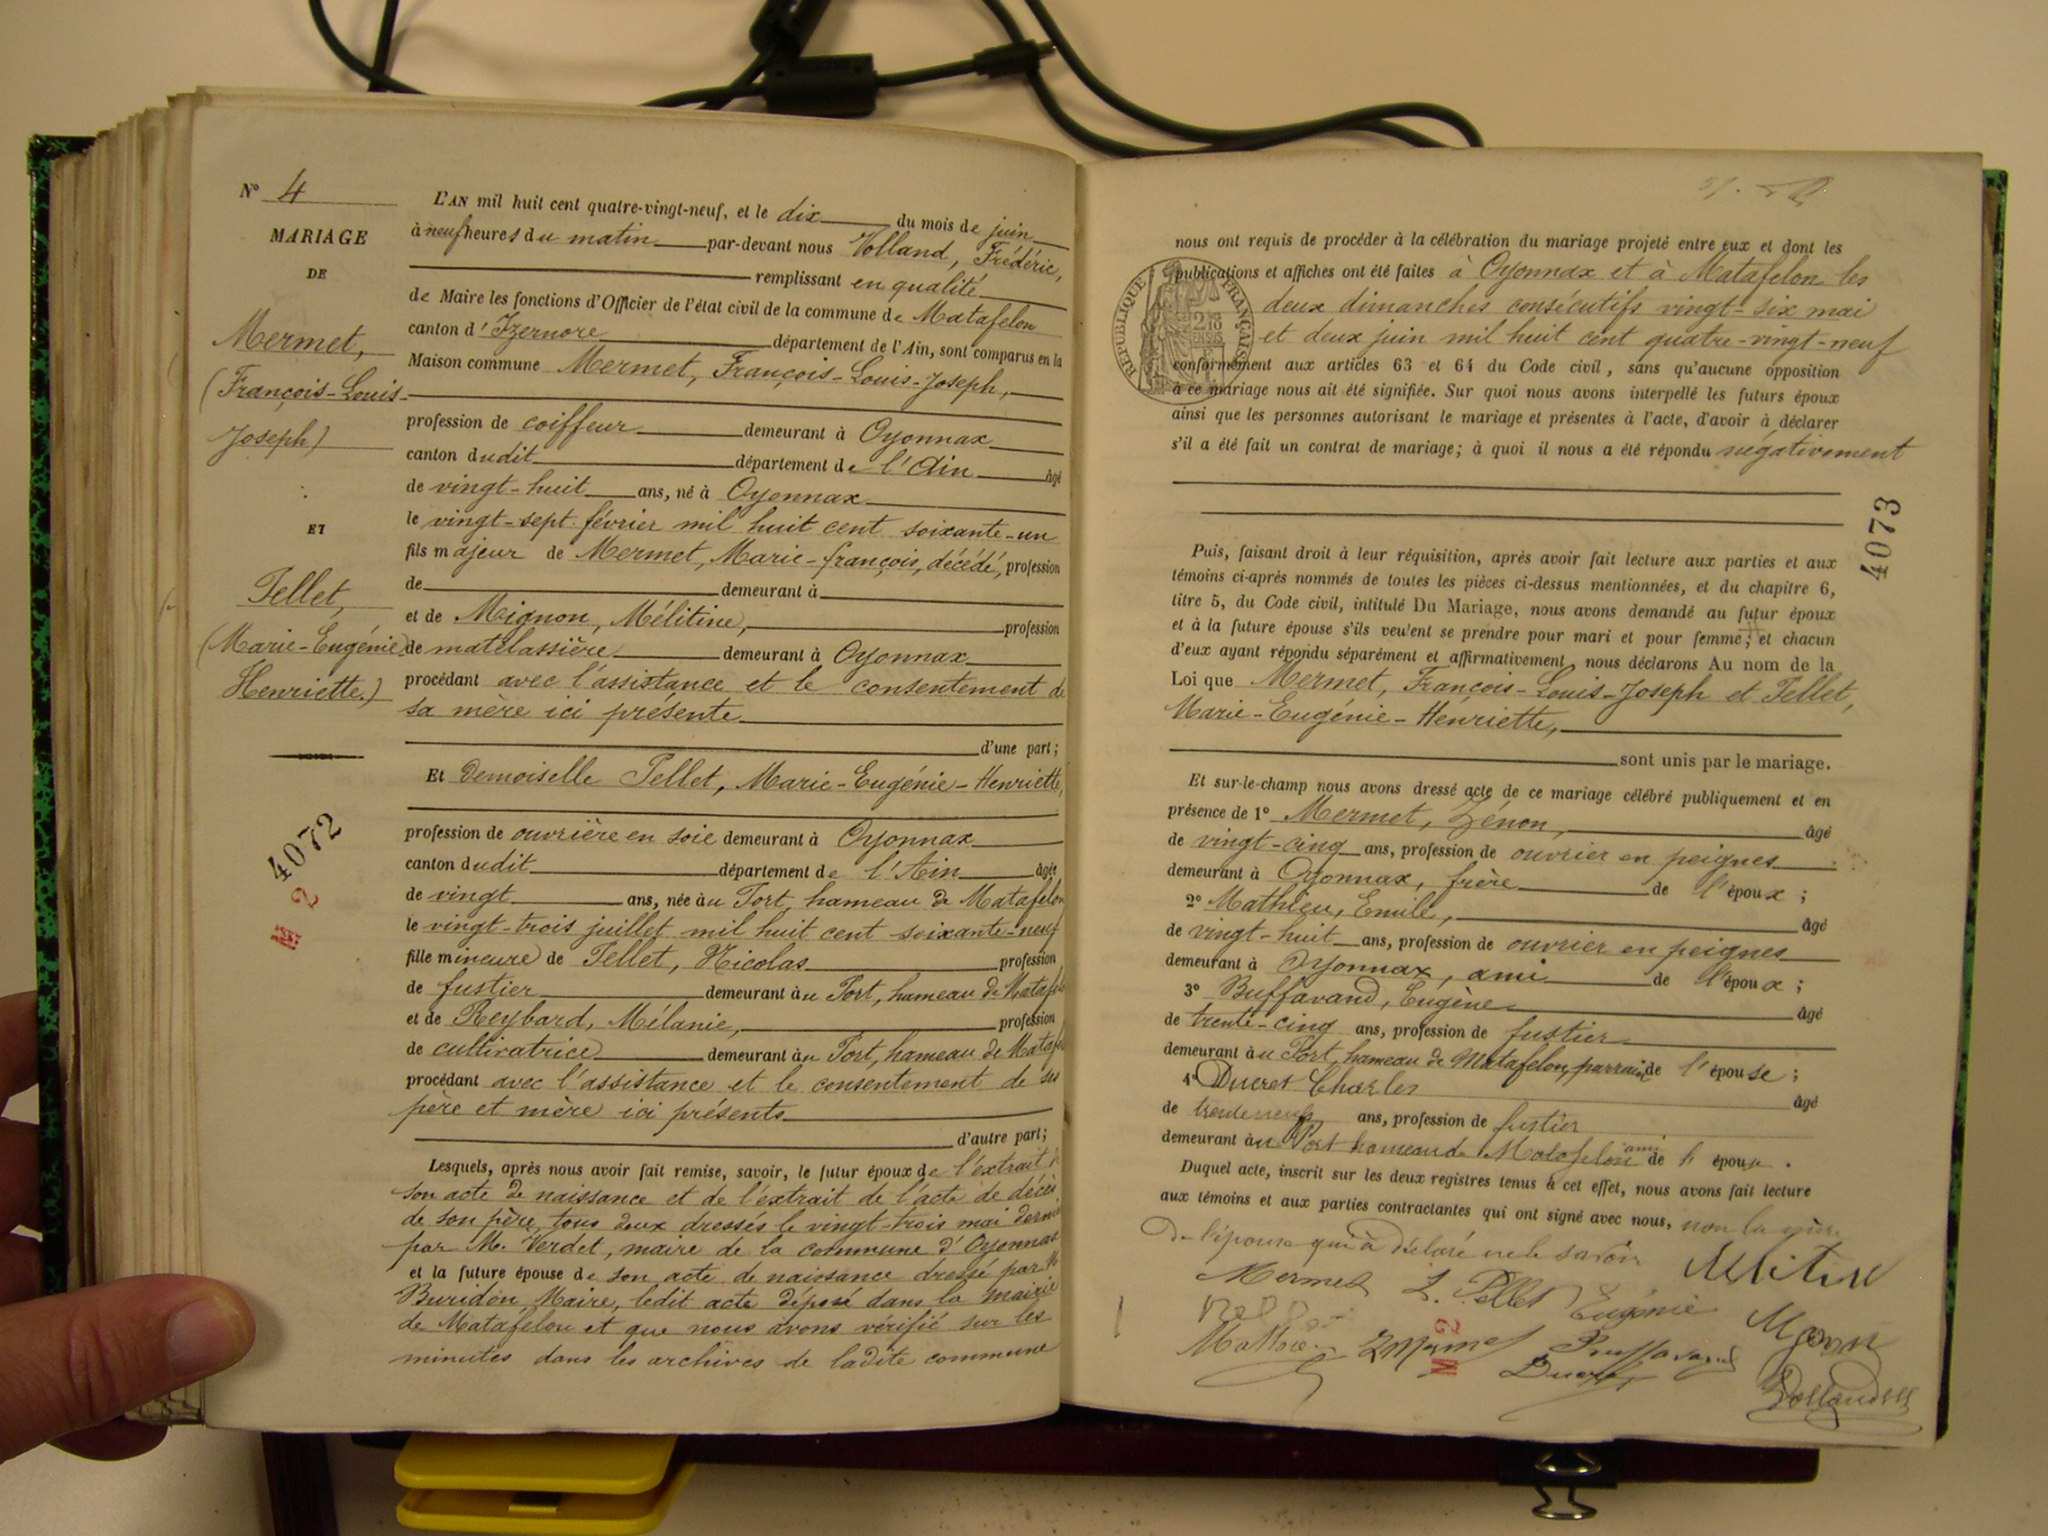 N° 4
MARIAGE
DE
Mermet,
(François-Louis-
Joseph)
ET
Pellet,
(Marie-Eugénie
Henriette)
4072
M 2
L'AN mil huit cent quatre-vingt-neuf, et le dix du mois de juin
à neuf heures du matin par-devant nous Volland, Frédéric,
remplissant en qualité
de Maire les fonctions d'Officier de l'état civil de la commune de Matafelon
canton d'Izernore département de l'Ain, sont comparus en la
Maison commune Mermet, François-Louis-Joseph,
profession de coiffeur demeurant à Oyonnax
canton dudit département de l'Ain âgé
de vingt-huit ans, né à Oyonnax
le vingt-sept février mil huit cent soixante-un
fils majeur de Mermet, Marie-françois, décédé, profession
de demeurant à
et de Mignon, Mélitine, profession
de matelassière demeurant à Oyonnax
procédant avec l'assistance et le consentement de
sa mère ici présente
d'une part;
Et Demoiselle Pellet, Marie-Eugénie-Henriette,
profession de ouvrière en soie demeurant à Oyonnax
canton dudit département de l'Ain âgée
de vingt ans, née au Port, hameau de Matafelon
le vingt-trois juillet mil huit cent soixante-neuf
fille mineure de Pellet, Nicolas profession
de fustier demeurant au Port, hameau de Matafel
et de Reybard, Mélanie, profession
de cultivatrice demeurant au Port, hameau de Mataf
procédant avec l'assistance et le consentement de ses
père et mère ici présents
d'autre part;
Lesquels, après nous avoir fait remise, savoir, le futur époux de l'extrait
son acte de naissance et de l'extrait de l'acte de décès
de son père, tous deux dressés le vingt-trois mai dernier
par M. Verdet, maire de la commune d'Oyonnax
et la future épouse de son acte de naissance dressé par M
Buridon, Maire, ledit acte déposé dans la mairie
de Matafelon et que nous avons vérifié sur les
minutes dans les archives de ladite commune
nous ont requis de procéder à la célébration du mariage projeté entre eux et dont les
publications et affiches ont été faites à Oyonnax et à Matafelon les
deux dimanches consécutifs vingt-six mai
et deux juin mil huit cent quatre-vingt-neuf
conformément aux articles 63 et 64 du Code civil, sans qu'aucune opposition
à ce mariage nous ait été signifiée. Sur quoi nous avons interpellé les futurs époux
ainsi que les personnes autorisant le mariage et présentes à l'acte, d'avoir à déclarer
s'il a été fait un contrat de mariage; à quoi il nous a été répondu négativement
RÉPUBLIQUE FRANÇAISE
4073
Puis, faisant droit à leur réquisition, après avoir fait lecture aux parties et aux
témoins ci-après nommés de toutes les pièces ci-dessus mentionnées, et du chapitre 6,
titre 5, du Code civil, intitulé Du Mariage, nous avons demandé au futur époux
et à la future épouse s'ils veulent se prendre pour mari et pour femme; et chacun
d'eux ayant répondu séparément et affirmativement nous déclarons Au nom de la
Loi que Mermet, François-Louis-Joseph et Pellet,
Marie-Eugénie-Henriette,
sont unis par le mariage.
Et sur-le-champ nous avons dressé acte de ce mariage célébré publiquement et en
présence de 1° Mermet, Zénon, âgé
de vingt-cinq ans, profession de ouvrier en peignes
demeurant à Oyonnax, frère de l'époux;
2° Mathieu, Emile, âgé
de vingt-huit ans, profession de ouvrier en peignes
demeurant à Oyonnax, ami de l'époux;
3° Buffavand, Eugène âgé
de trente-cinq ans, profession de fustier
demeurant au Port, hameau de Matafelon, parrain de l'épouse;
4° Ducret Charles âgé
de trente neuf ans, profession de fustier
demeurant au Port hameau de Matafelon ami de l'épouse.
Duquel acte, inscrit sur les deux registres tenus à cet effet, nous avons fait lecture
aux témoins et aux parties contractantes qui ont signé avec nous, non la mère
De l'épouse qui a déclaré ne le savoir
Mermet L. Pellet Eugénie Melitine
Mathieu Z Mermet Buffavand Mignon
M 2
Ducret
Volland